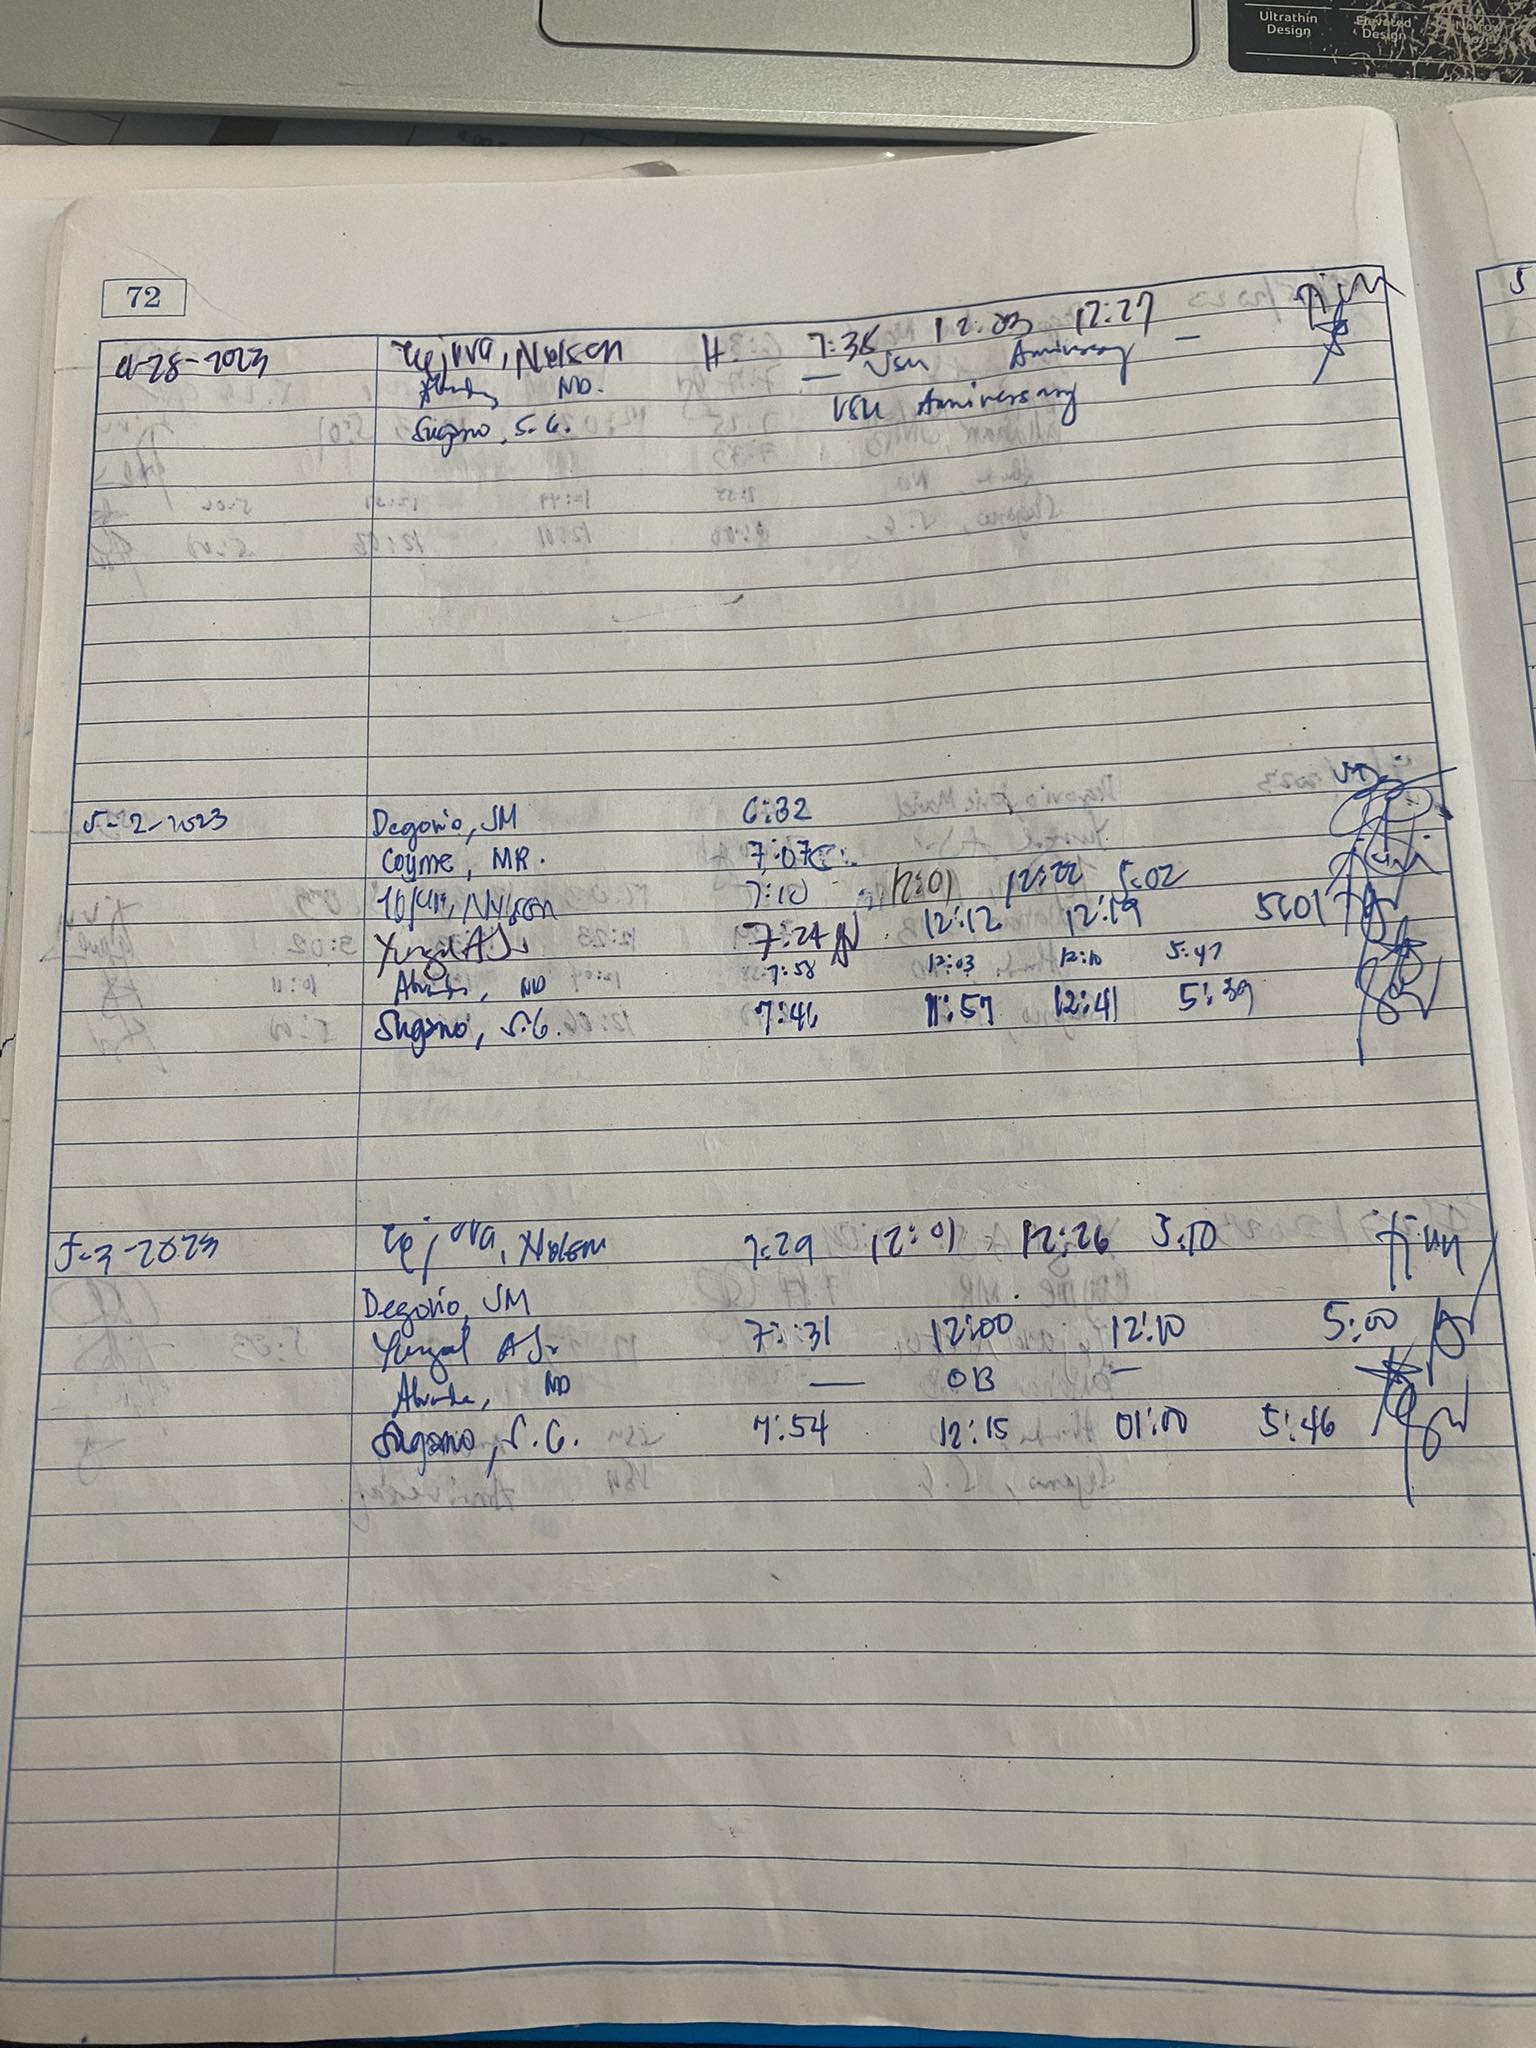 Ultrathin Design
Elevated Design
Narrow
72
4-28-2023 Tejora, Nelson H 7:38 12:03 12:27
ND. — VSU Anniversary —
Sugano, S.G. VSU Anniversary
5-2-2023 Degorio, JM 6:32
Coyme, MR. 7:07
Nelson 7:10 12:01 12:22 5:02
Yungal AJr 7:24 12:12 12:19 5:01
ND 7:58 12:03 12:10 5:47
Sugano, S.G. 7:46 11:57 12:41 5:39
5-3-2023 Tejora, Nelson 7:29 12:01 12:26 5:10
Degorio, JM
Yungal AJr 7:31 12:00 12:10 5:00
ND — OB —
Sugano, S.G. 7:54 12:15 01:00 5:46
5